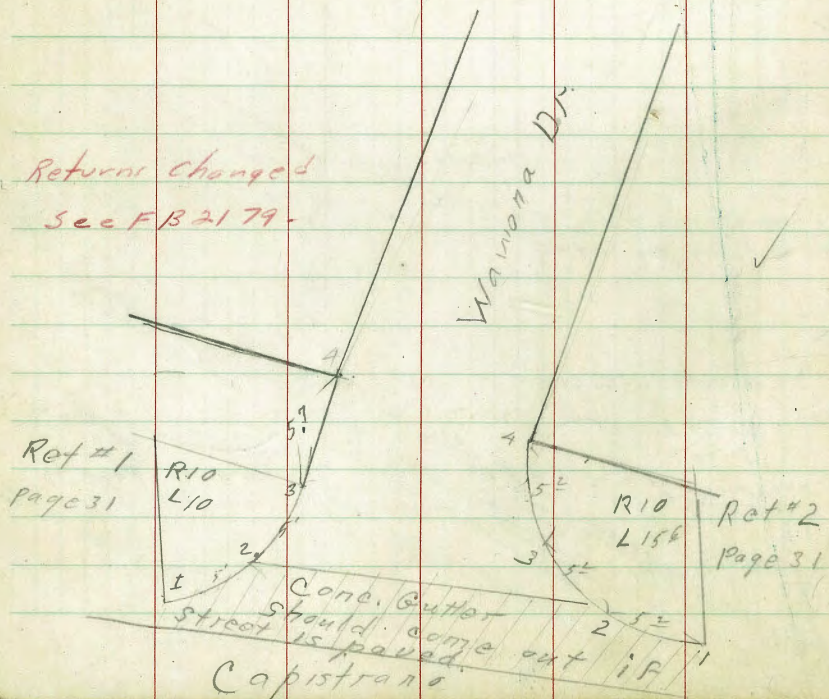 Returns Changed
See FB 2179-
Wawona Dr.
4
5
Ret #1
Page 31
R10
L10
3
5'
2
5'
1
4
5 2
R10
L 15 6
Ret #2
Page 31
3
5 2
2
5 2
1
Conc. Gutter
should come out if
street is paved.
Capistrano